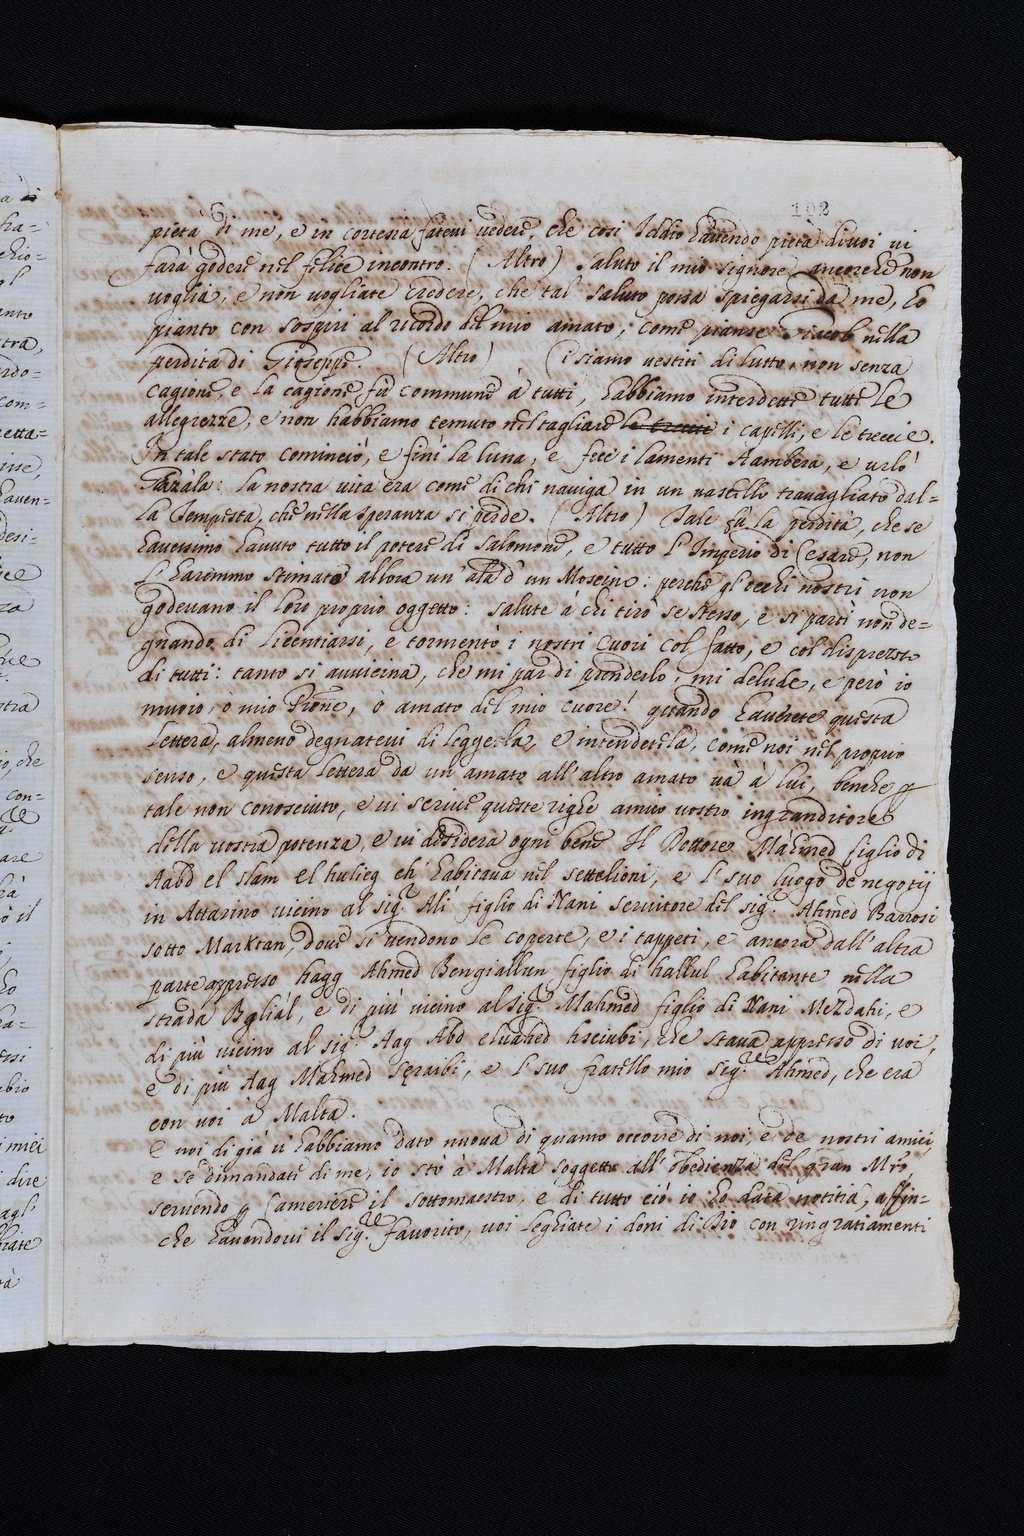 102
pietà di me, e in cortesia fatevi vedere, che così Iddio havendo pietà di voi vi
farà godere nel felice incontro. (Altro) Saluto il mio signore, ancorche non
voglia, e non vogliate credere, che tal saluto possa spiegarsi da me, ho
pianto con sospiri al ricordo del mio amato, come pianse Giacob nella
perdita di Giuseppe. (Altro) Ci siamo vestiti di lutto, non senza
cagione, e la cagione fù commune à tutti, habbiamo interdette tutte le
allegrezze, e non habbiamo temuto nel tagliare i capelli, e le treccie.
In tale stato cominciò, e finì la luna, e fece i lamenti Aambera, e urlò
Gazàla: la nostra vita era come di chi naviga in un vascello travagliato dal-
la Tempesta, che nella speranza si perde. (Altro) Tale fù la perdita, che se
havessimo havuto tutto il potere di Salomone, e tutto l'Imperio di Cesare, non
l'haremmo stimato allora un'ala d'un Moscino: perche gl'occhi nostri non
godevano il loro proprio oggetto: salute à chi tirò se stesso, e si partì non de-
gnando di licentiarsi, e tormentò i nostri cuori col fatto, e col disprezzo
di tutti: tanto si avvicina, che mi par di prenderlo, mi delude, e però io
muoio, ò mio, ò amato del mio cuore! quando haverete questa
lettera, almeno degnatevi di leggerla, e intenderela, come noi nel proprio
senso, e questa lettera da un amato all'altro amato và à lui, benche p
tale non conosciuto, e vi scrive queste righe amico vostro ingranditore
della vostra potenza, e vi desidera ogni bene Il Dottore Mahmed figlio di
Aabd el slam el hulieg ch'habitava nel settelioni, e l'suo luogo de negotij
in Attarino vicino al sig.r Alì figlio di Nani servitore del sig.r Ahmed Barrosi
sotto Marktan, dove si vendono le coperte, e i tappeti, e ancora dall'altra
parte appresso hagg Ahmed Bengiallun figlio di hallul habitante nella
strada Bgliàl, e di più vicino al sig.r Mahmed figlio di Nani Mezdahi, e
di più vicino al sig.r Aag Abd eluahed hsciubi, che stava appresso di voi,
e di più Aag Mahmed Sgraibi, e l'suo fratello mio sig.re Ahmed, che era
con voi à Malta.
E noi di già vi habbiamo dato nuova di quanto occorre di noi, e de nostri amici,
e se dimandate di me, io stò à Malta soggetto all'obedienza del gran Mro,
servendo p Cameriere il sottomaestro, e di tutto ciò io ho data notitia, affin-
che havendovi il sig.re favorito, voi leghiate i doni di Dio con ringratiamenti